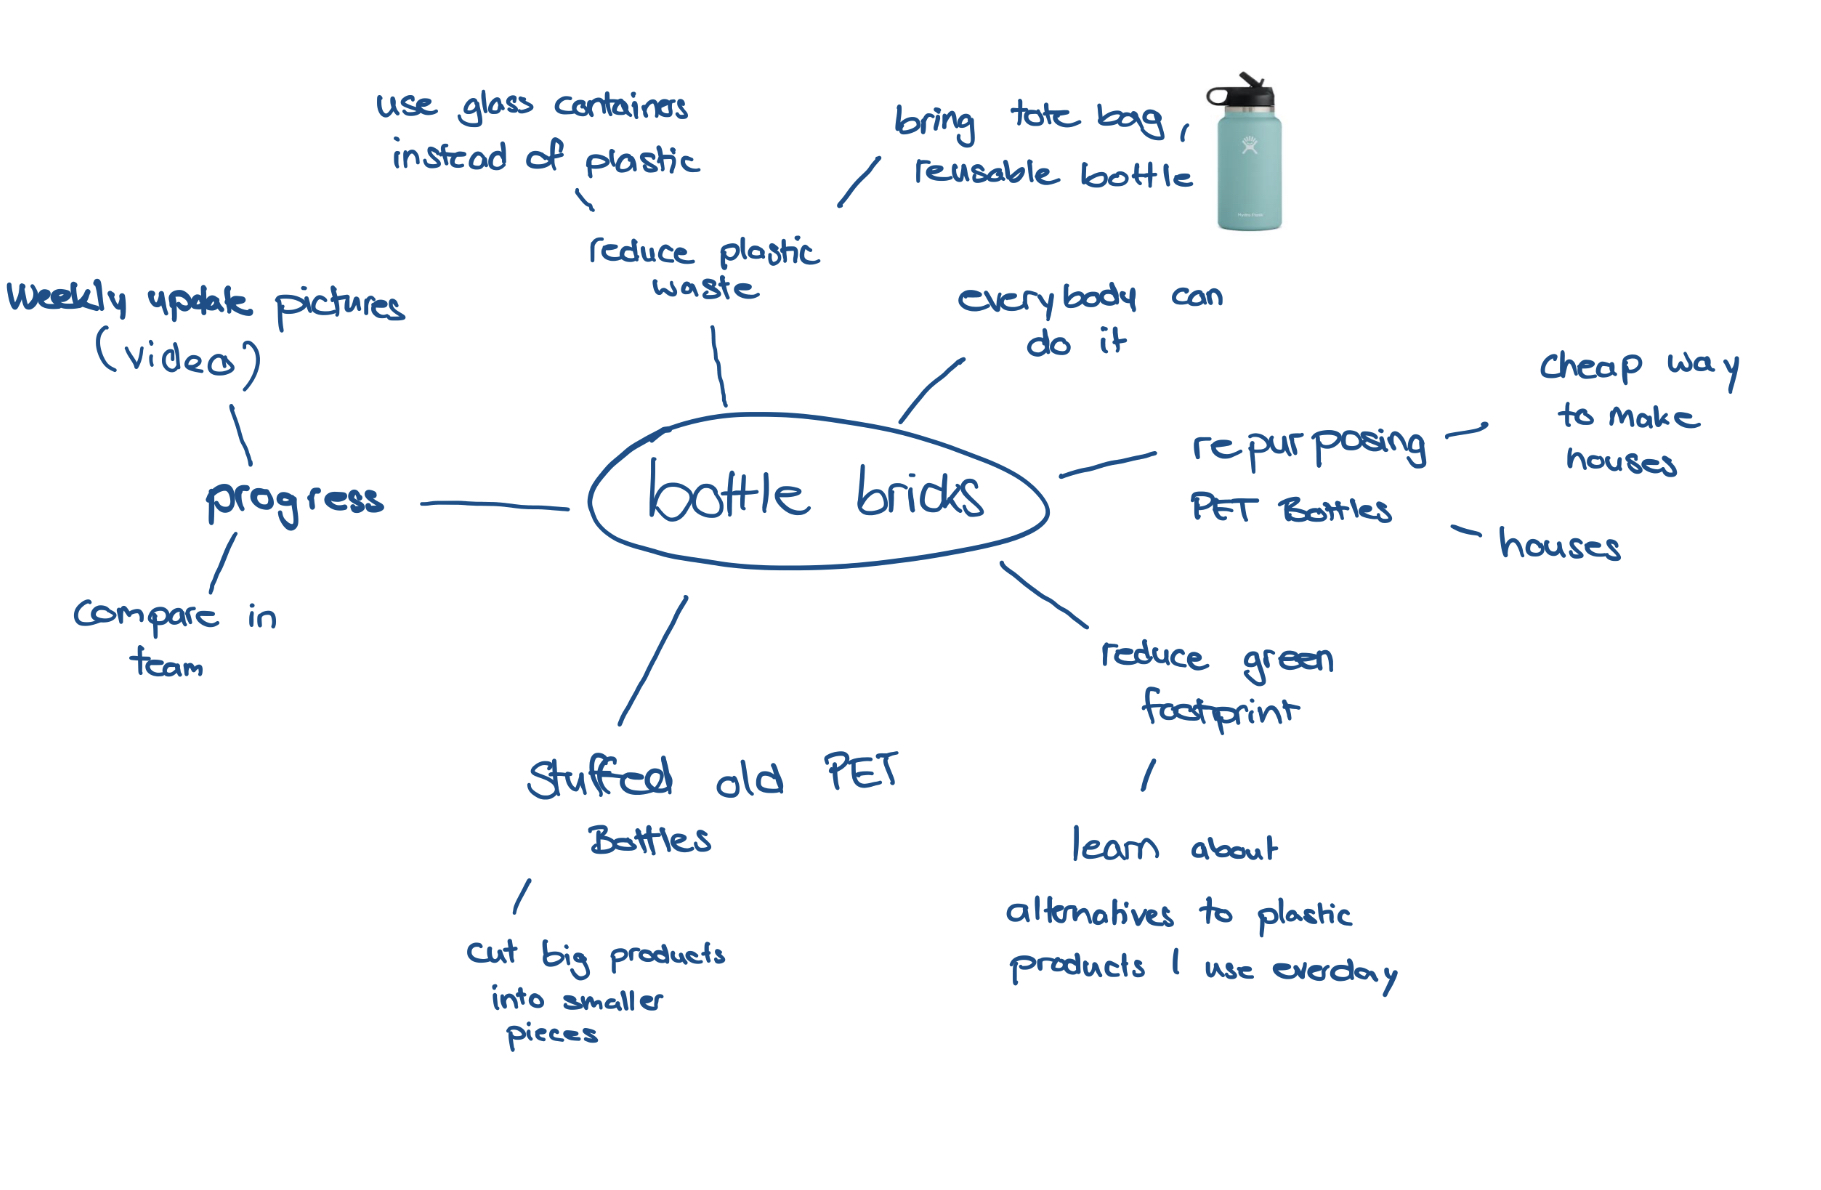 use glass containers
instead of plastic
bring tote bag,
reusable bottle
reduce plastic
waste
everybody can
do it
weekly update pictures
(video)
progress
compare in
team
bottle bricks
cheap way
to make
houses
repurposing
PET Bottles
houses
reduce green
footprint
learn about
alternatives to plastic
products I use everday
Stuffed old PET
Bottles
cut big products
into smaller
pieces